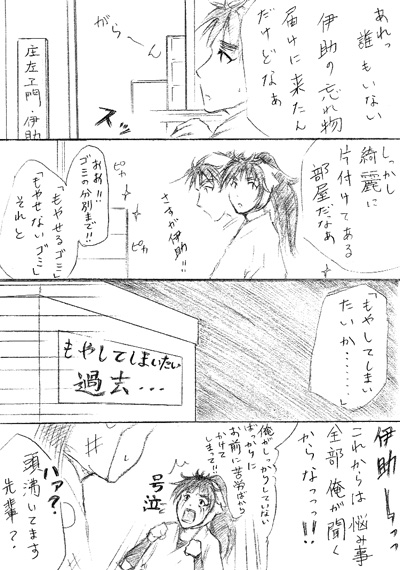 あれっ
誰もいない
伊助の忘れ物
届けに来たん
だけどなぁ
がら〜ん
庄左ヱ門・伊助
しっかし
綺麗に
片付けてある
部屋だなぁ
ピカ
ピカ
さすが伊助!!
おお!!
ゴミの分別まで!!
「もやせるゴミ」
それと
「もやせないゴミ」
「もやしてしまい
たいか・・・・・・」
もやしてしまいたい
過去・・・
伊助ーーッッ
これからは悩み事
全部俺が聞く
からなっっっ!!
俺がしっかりしていない
ばっかりに
お前に苦労ばかり
かけて
しまって!!
号泣
ハァ?
頭沸いてます
先輩?